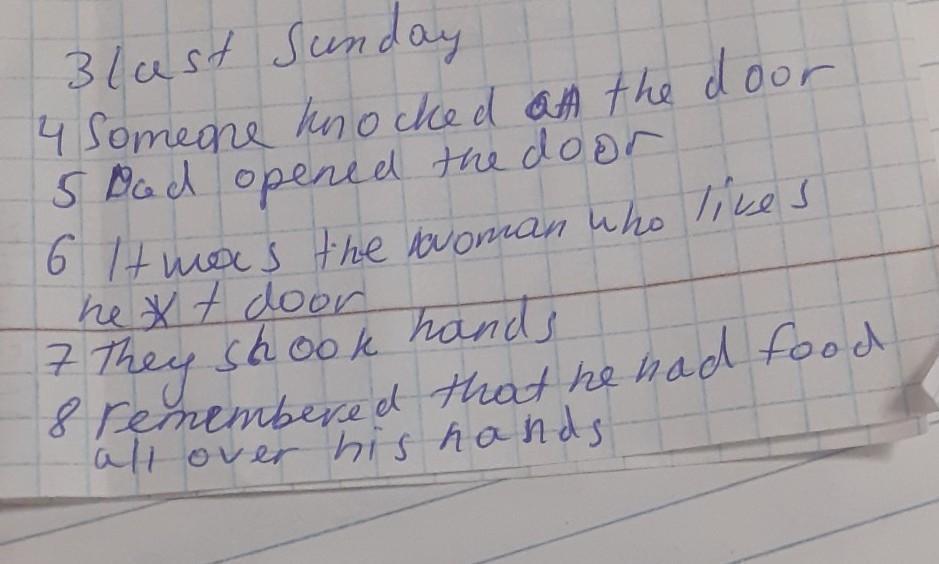 3 last Sunday
4 Someone knocked on the door
5 Dad opened the door
6 It was the woman who lives
next door
7 They shook hands
8 remembered that he had food
all over his hands